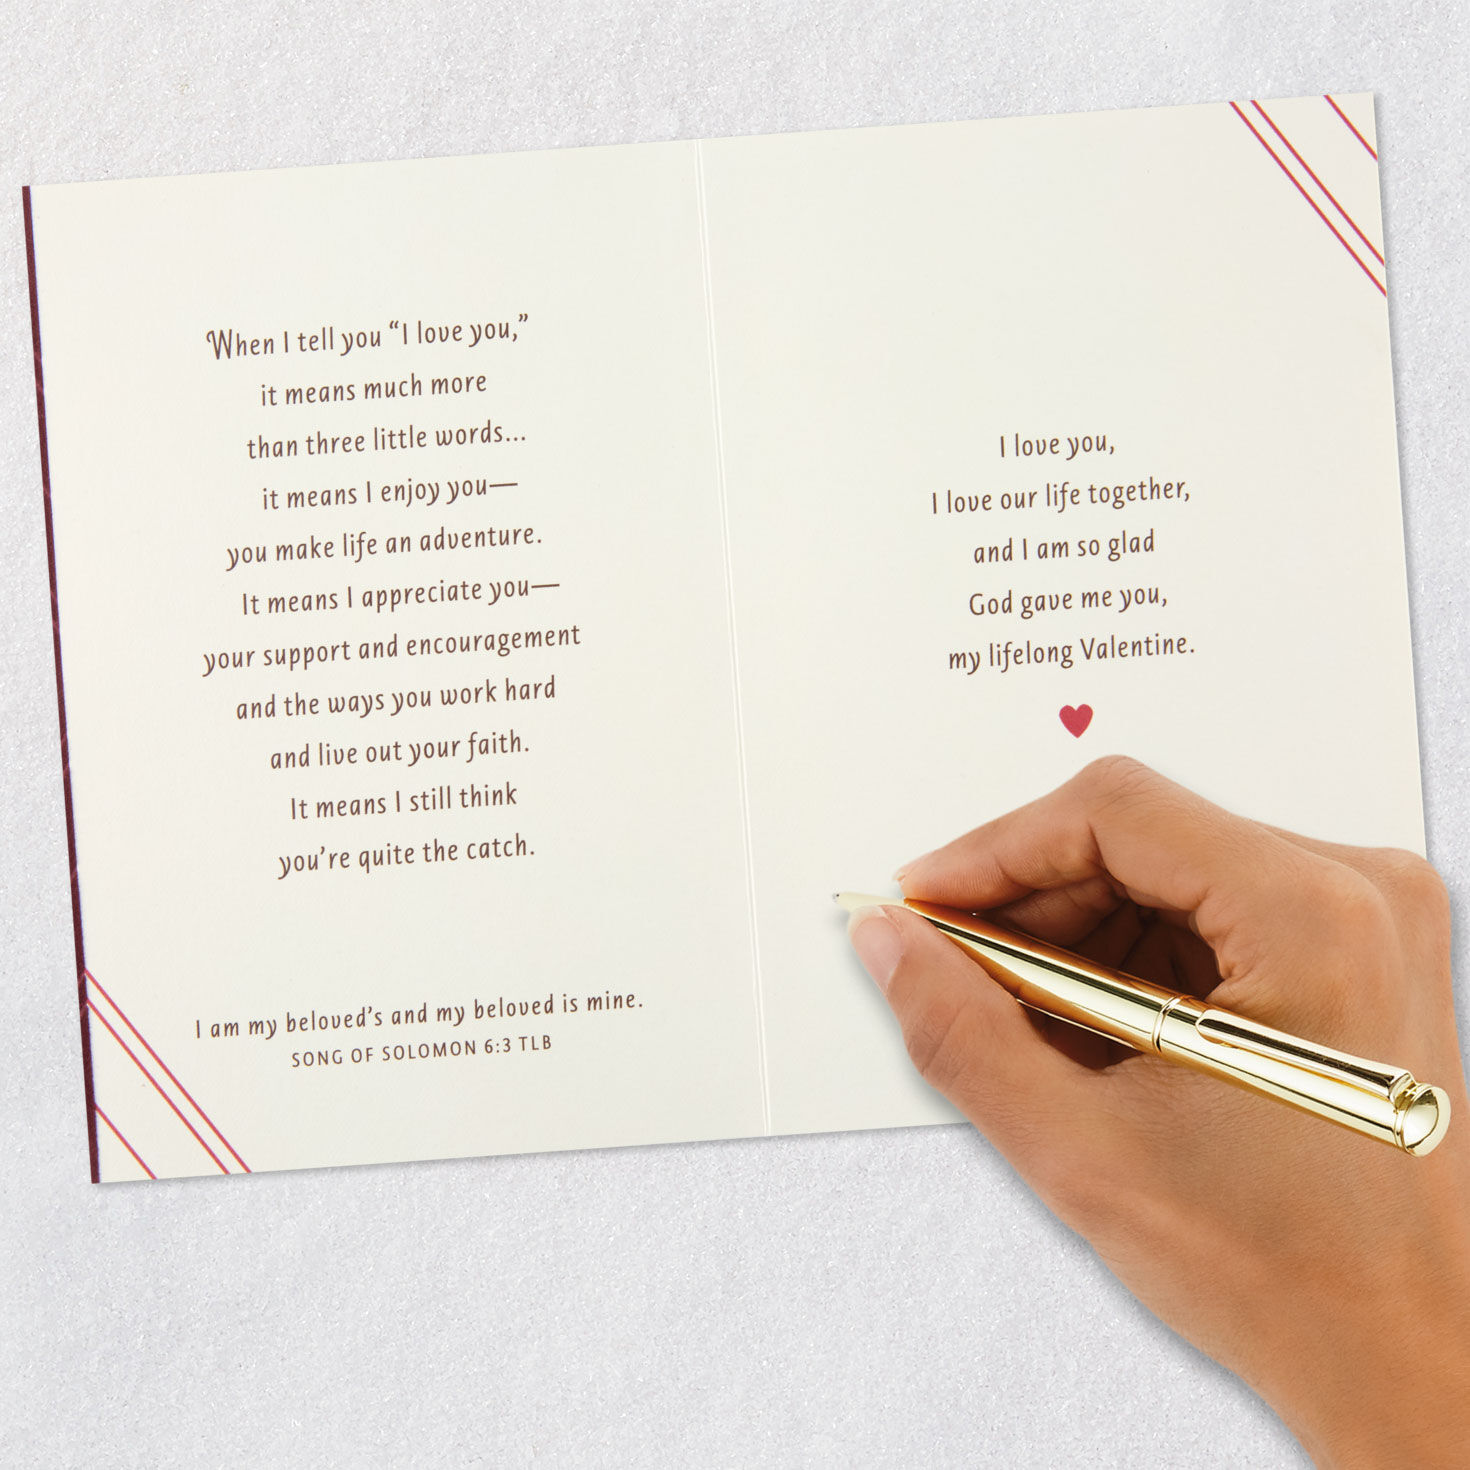 When I tell you “I love you,”
it means much more
than three little words...
it means I enjoy you—
you make life an adventure.
It means I appreciate you—
your support and encouragement
and the ways you work hard
and live out your faith.
It means I still think
you’re quite the catch.
I am my beloved’s and my beloved is mine.
SONG OF SOLOMON 6:3 TLB
I love you,
I love our life together,
and I am so glad
God gave me you,
my lifelong Valentine.